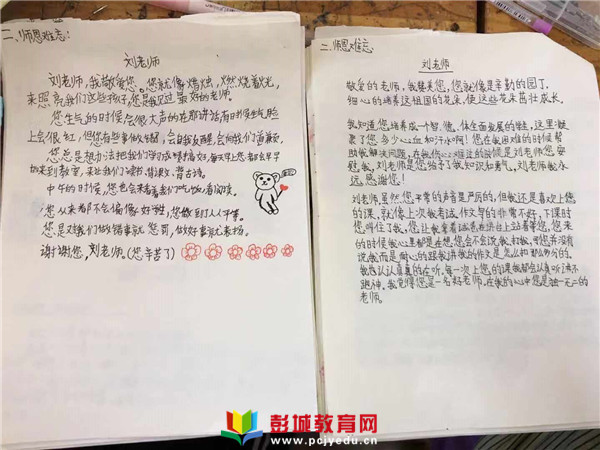 二、师恩难忘：
刘老师
刘老师，我敬爱您。您就像蜡烛，燃烧着光，
来照亮我们这些孩子，您是我见过最好的老师。
您生气的时候会很大声的老那讲话有时候生气脸
上会很红，但您有些事做错，会自我反醒，会向我们道歉。
您总是想办法把我们学习成绩搞好，每天早上您都会早早
的来到教室，来让我们读书、背课文、背古诗。
中午的时候，您也会来看着我们吃饭，看阅读。
您从来都不会偏像好学生，您做到了人人平等。
您是对我们做错事就 罚，做好事就表扬。
谢谢您，刘老师。(您辛苦了)
二、师恩难忘
刘老师
敬爱的老师，我赞美您，您就像是辛勤的园丁，
细心的培养这祖国的花朵，使这些花朵茁壮成长。
我知道您培养成一个智、德、体全面发展的学生，这里凝
聚了您多少心血和汗水啊！您在我困难的时候帮
助我解决问题，在我伤心难过的时候是刘老师您安
慰我，刘老师是您给予我知识和勇气，刘老师我永
远感谢您！
刘老师，虽然您平常的声音是严厉的，但我还是喜欢上您
的课，就像上次我考试，作文写的非常不好，下课时
您叫住了我，您让我拿着试卷在讲台上站着等您，您来
的时候我心里都是在想您会不会说我、打我，可您并没有
说我而是用心的跟我讲我的作文是怎么扣那么多分的。
我感认认真真的在听。每一次上您的课我都会认真听讲不
跑神。我觉得您是一名好老师。在我的心中您是独一无二的
老师。
彭城教育网
www.pcjyedu.cn